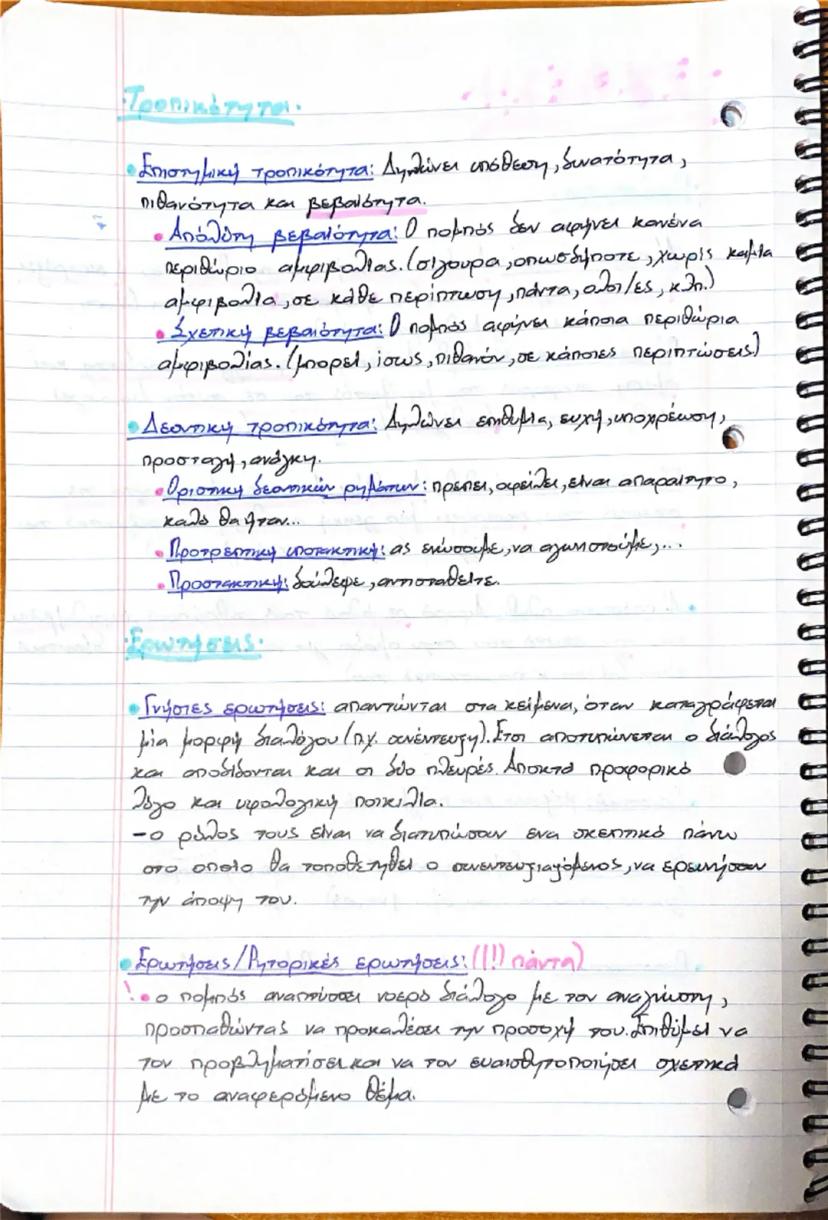 ·Τροπικότητα·
• Επιστημική τροπικότητα: Δηλώνει υπόθεση, δυνατότητα,
πιθανότητα και βεβαιότητα.
• Απόλυτη βεβαιότητα: Ο πομπός δεν αφήνει κανένα
περιθώριο αμφιβολίας. (σίγουρα, οπωσδήποτε, χωρίς καμία
αμφιβολία, σε κάθε περίπτωση, πάντα, όλοι/ες, κλπ.)
• Σχετική βεβαιότητα: Ο πομπός αφήνει κάποια περιθώρια
αμφιβολίας. (μπορεί, ίσως, πιθανόν, σε κάποιες περιπτώσεις)
• Δεοντική τροπικότητα: Δηλώνει επιθυμία, ευχή, υποχρέωση,
προσταγή, ανάγκη.
• Οριστική δεοντικών ρημάτων: πρέπει, οφείλει, είναι απαραίτητο,
καλό θα ήταν...
• Προτρεπτική υποτακτική: ας ενώσουμε, να αγωνιστούμε,...
• Προστακτική: δούλεψε, αντισταθείτε.
·Ερωτήσεις·
• Γνήσιες ερωτήσεις: απαντώνται στα κείμενα, όταν καταγράφεται
μία μορφή διαλόγου (π.χ. συνέντευξη). Έτσι αποτυπώνεται ο διάλογος
και αποδίδονται και οι δύο πλευρές. Αποκτά προφορικό
λόγο και υφολογική ποικιλία.
- ο ρόλος τους είναι να διατυπώσουν ένα σκεπτικό πάνω
στο οποίο θα τοποθετηθεί ο συνεντευξιαζόμενος, να ερευνήσουν
την άποψη του.
• Ερωτήσεις/Ρητορικές ερωτήσεις: ((!) πάντα)
! • ο πομπός αναπτύσσει νοερό διάλογο με τον αναγνώστη,
προσπαθώντας να προκαλέσει την προσοχή του. Επιθυμεί να
τον προβληματίσει και να τον ευαισθητοποιήσει σχετικά
με το αναφερόμενο θέμα.